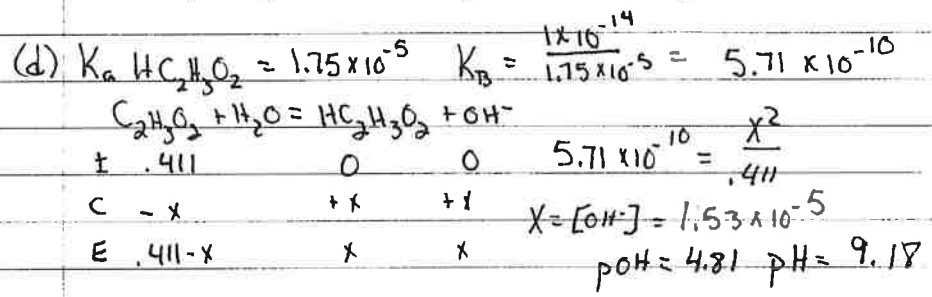 (d) Ka HC₂H₃O₂ = 1.75x10⁻⁵ KB = 1x10⁻¹⁴ / 1.75x10⁻⁵ = 5.71 x10⁻¹⁰
C₂H₃O₂ + H₂O = HC₂H₃O₂ + OH⁻
I .411 0 0 5.71 x10⁻¹⁰ = x² / .411
C -x +x +x x = [OH⁻] = 1.53x10⁻⁵
E .411-x x x pOH = 4.81 pH = 9.18